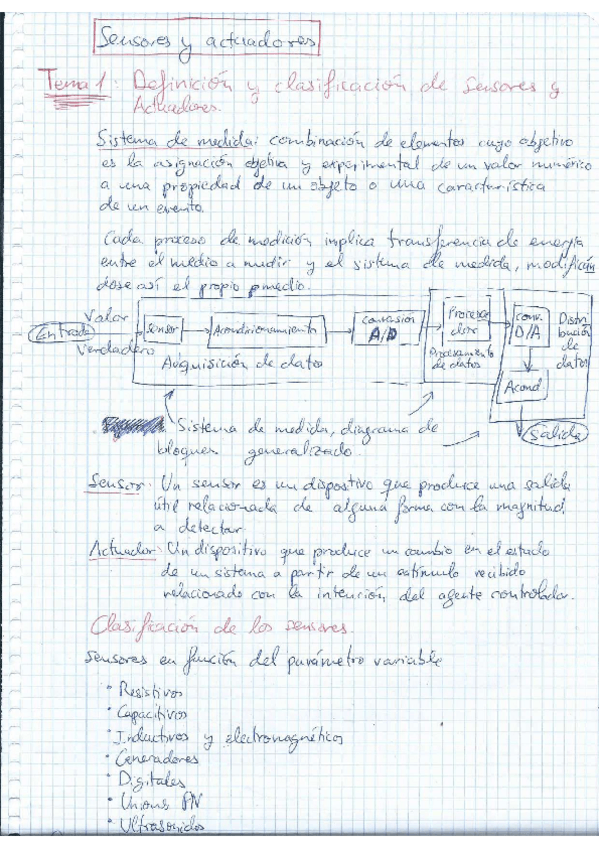 Sensores y actuadores
Tema 1: Definición y clasificación de sensores y
Actuadores.
Sistema de medida: combinación de elementos cuyo objetivo
es la asignación objetiva y experimental de un valor numérico
a una propiedad de un objeto o una característica
de un evento.
Cada proceso de medición implica transferencia de energía
entre el medio a medir y el sistema de medida, modificán
dose así el propio medio.
Valor
Entrada
Verdadero
Sensor
Acondicionamiento
conversion
A/D
Adquisición de datos
Procesa
dor
Procesamiento
de datos
conv.
D/A
Acond
Distri
bución
de
datos
Salida
Sistema de medida, diagrama de
bloques generalizado.
Sensor: Un sensor es un dispostivo que produce una salida
útil relacionada de alguna forma con la magnitud
a detectar
Actuador: Un dispositivo que produce un cambio en el estado
de un sistema a partir de un estímulo recibido
relacionado con la intención del agente controlador.
Clasificación de los sensores.
Sensores en función del parámetro variable
· Resistivos
· Capacitivos
· Inductivos y electromagnéticos
· Generadores
· Digitales
· Unions PN
· Ultrasonidos